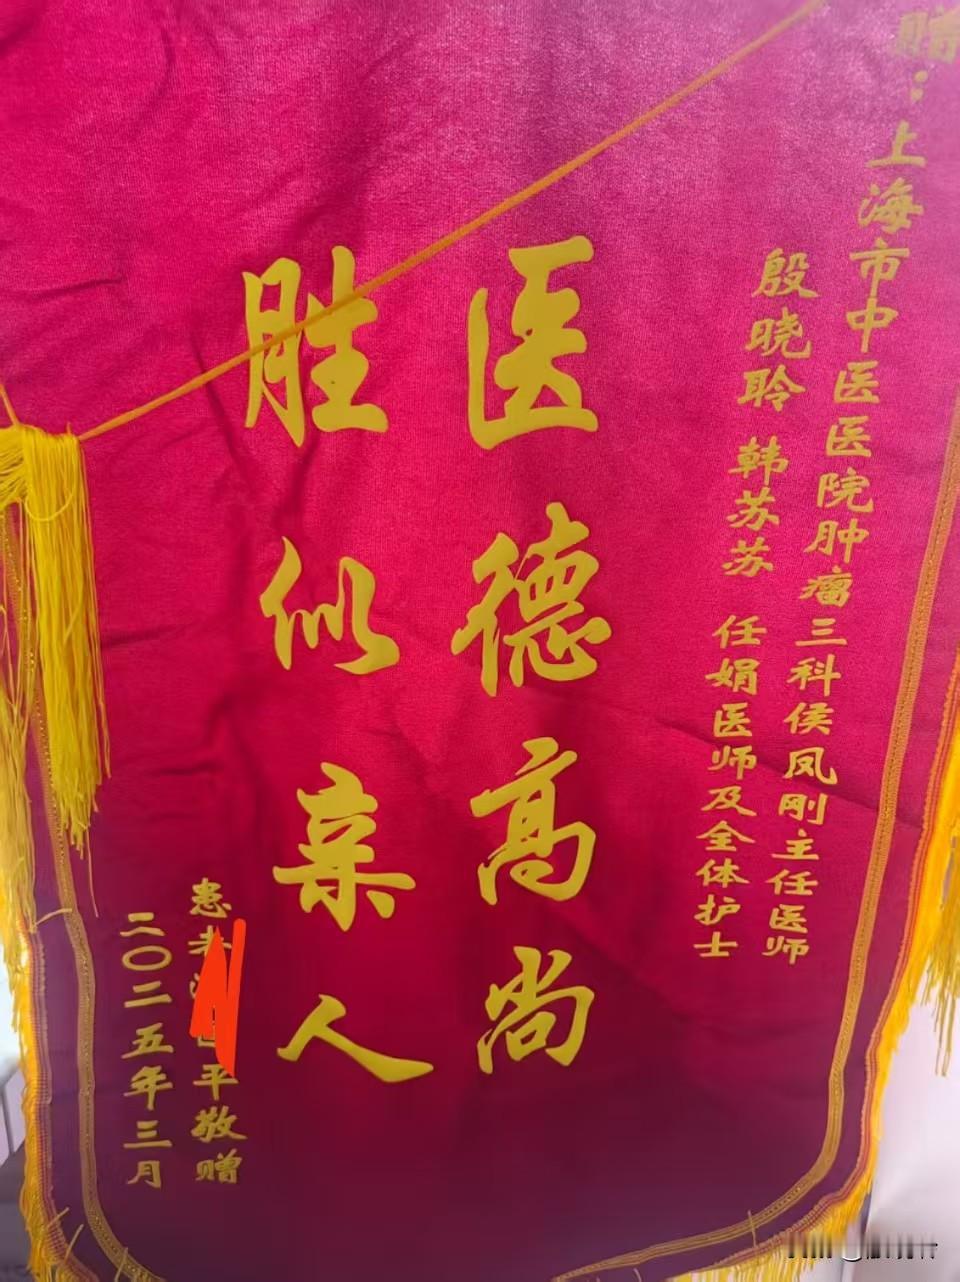 赠：上海市中医医院肿瘤三科侯凤刚主任医师
殷晓聆 韩苏苏 任娟医师及全体护士
医德高尚
胜似亲人
患者 平敬赠
二〇二五年三月